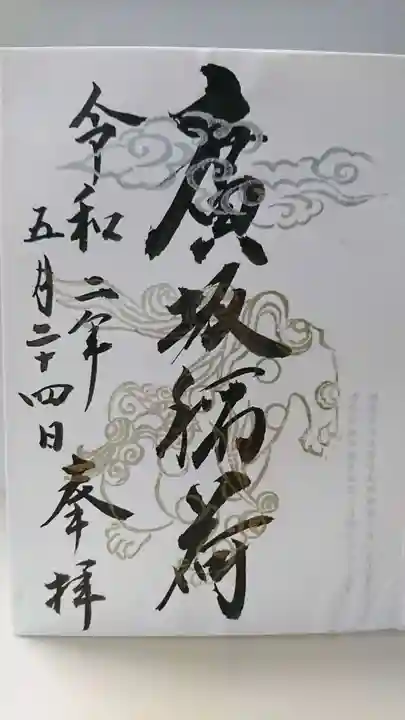 廣坂稲荷
令和二年
五月二十四日
奉拝